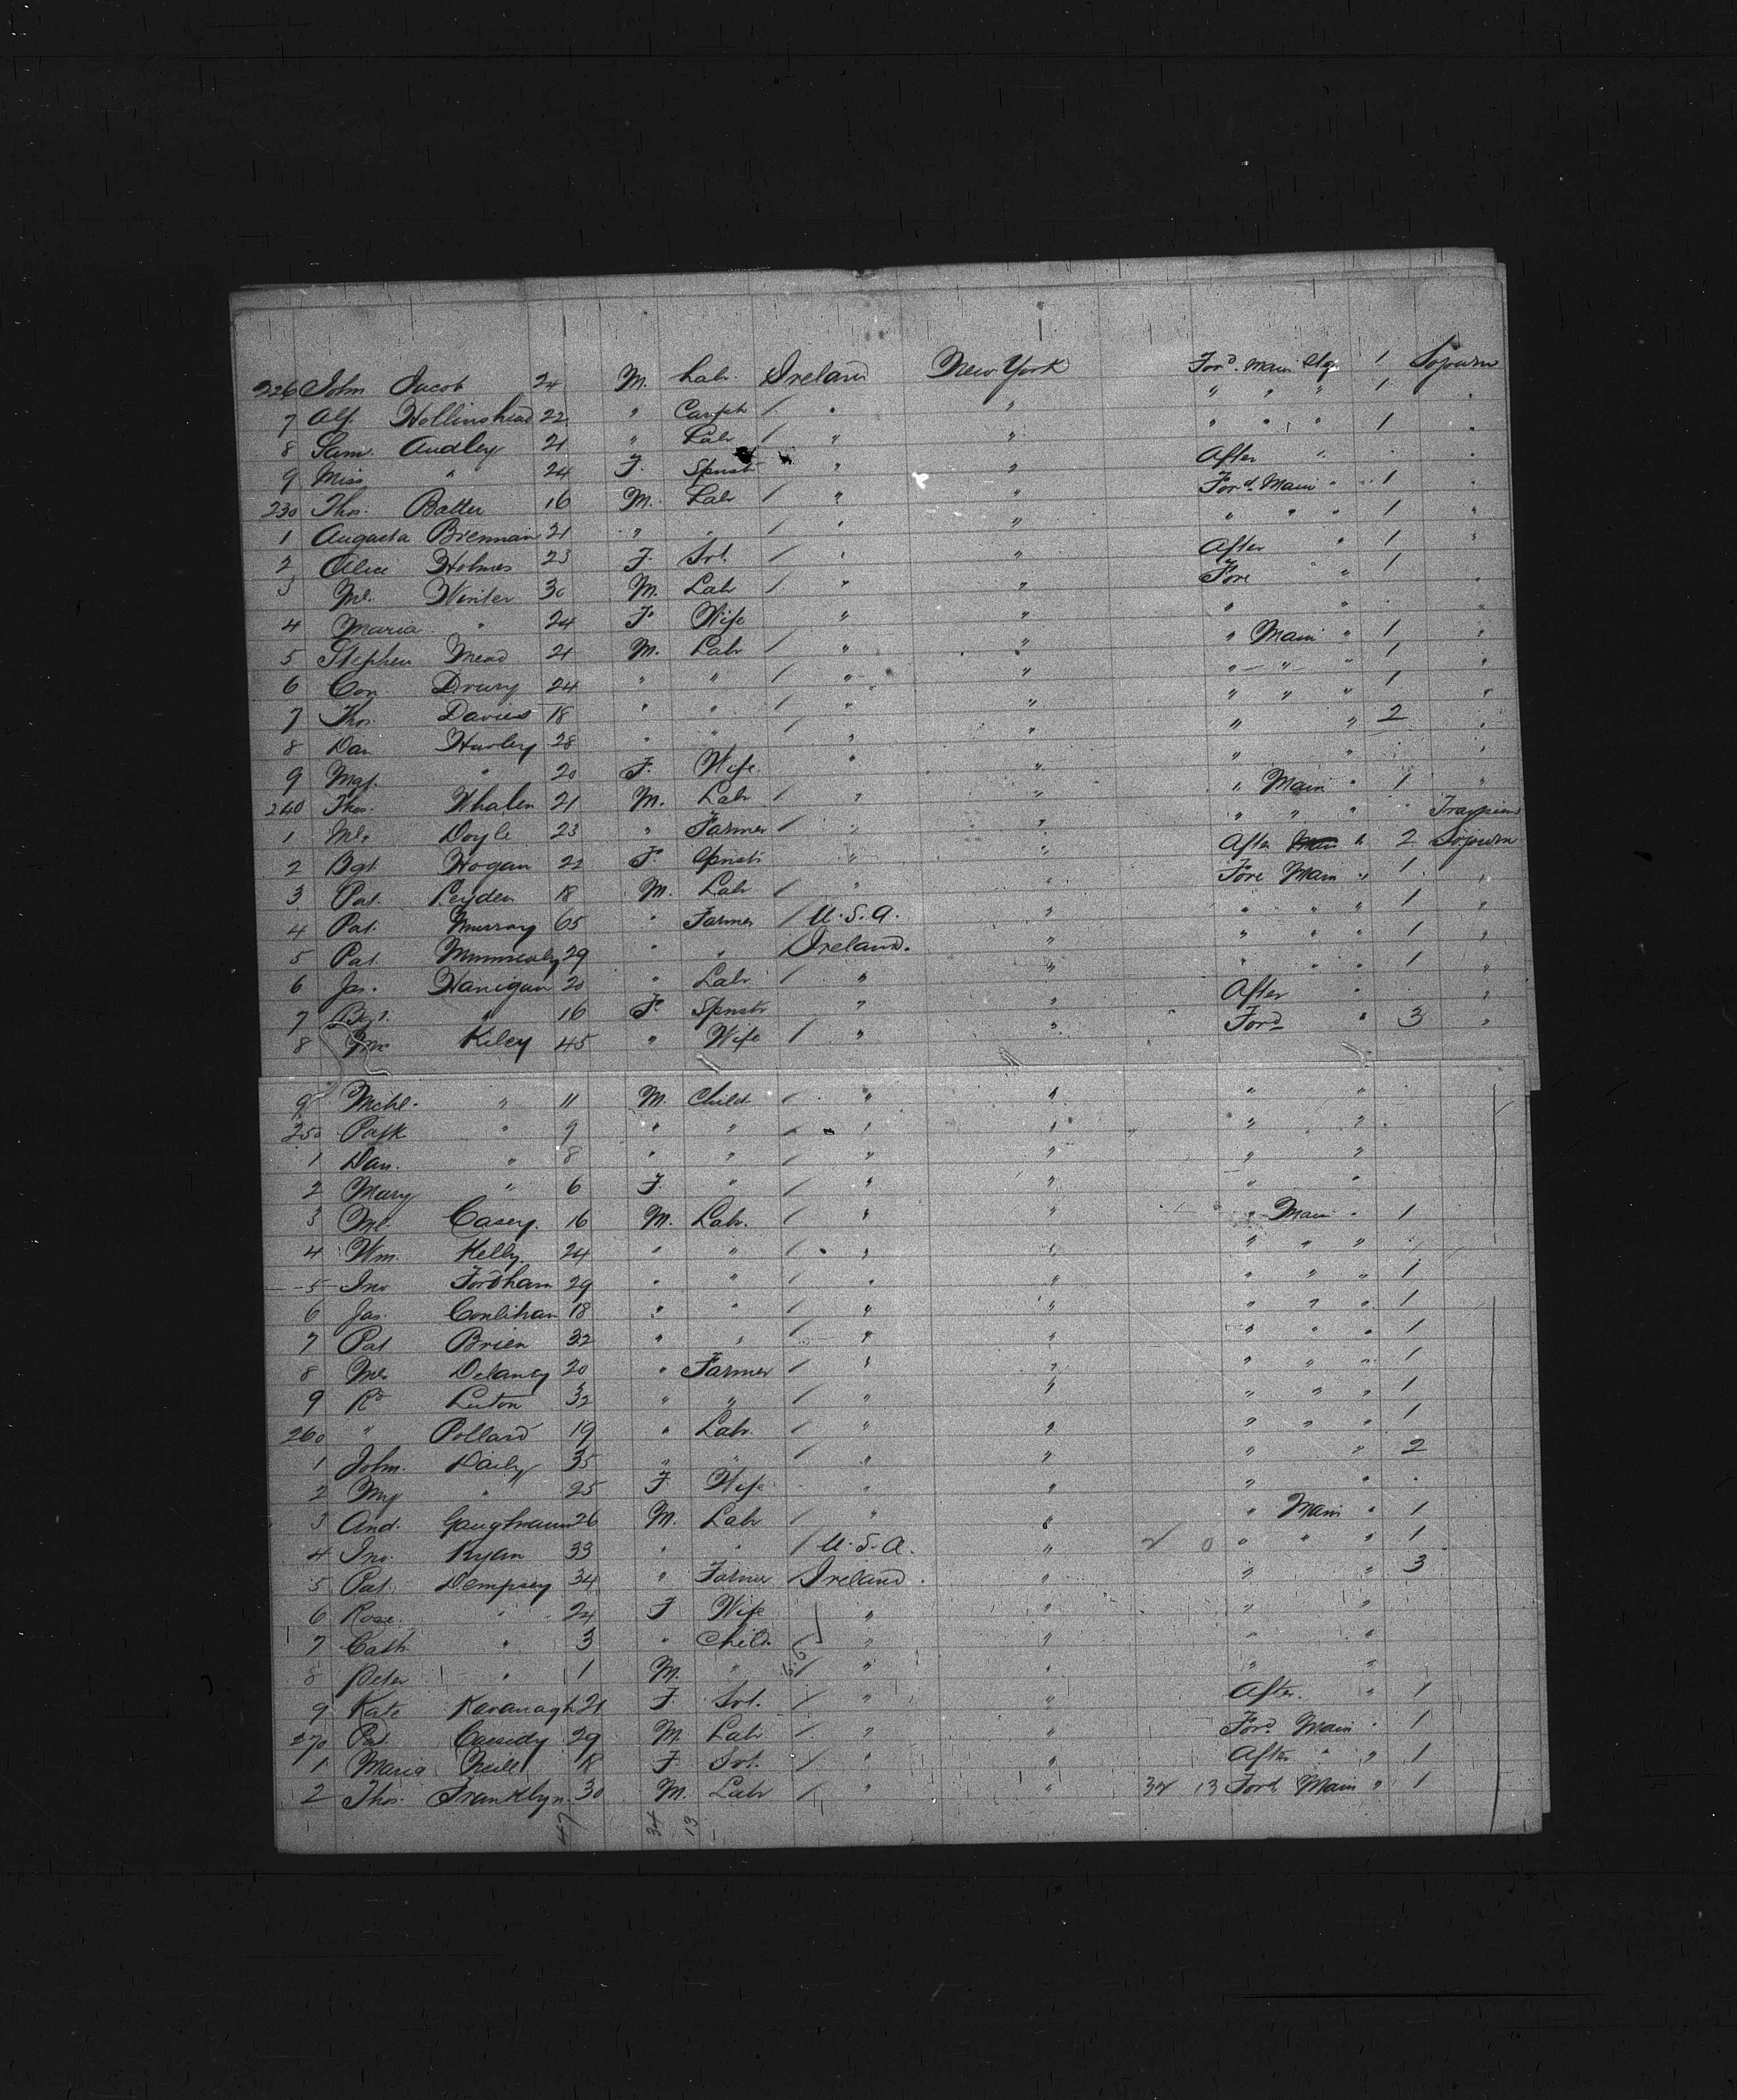 226 John Jacob 24 M. Lab. Ireland New York For'd. Main Stg 1 Sojourn
7 Alf. Hollinshead 22 " Carpt / " " " " " 1 "
8 Sam. Audley 21 " Labr / " " " " " 1 "
9 Miss " 24 F. Spnstr " " After " . "
230 Thos. Batter 16 M. Labr / " " For'd. Main " 1 "
1 Augusta Brennan 21 " " / " " " " " 1 "
2 Alice Holmes 23 F. Svt. / " " After " 1 "
3 Ml. Winter 30 M. Labr / " " Fore " 1
4 Maria " 24 F. Wife " " " " "
5 Stephen Mead 21 M. Labr / " " " Main " 1 "
6 Con Drury 24 " " / " " " " " 1 "
7 Thos. Davies 18 " " / " " " " " 1 "
8 Dan Hurley 28 " " / " " " " 2 "
9 Mgt. " 20 F. Wife. " " " " "
240 Thos. Whalen 21 M. Labr / " " " Main " 1 "
1 Ml. Doyle 23 " Farmer / " " " " " "
2 Bgt. Hogan 22 F. Spnstr " " After Main " 2 Sojourn
3 Pat. Leyden 18 M. Labr / " " Fore Main " 1 "
4 Pat. Murray 65 " Farmer / U.S.A. " " " " 1 "
5 Pat. 29 " " Ireland. " " " " 1 "
6 Jas. Hanigan 20 " Labr / " " " " " 1 "
7 Bgt. " 16 F. Spnstr " " After " "
8 Kiley 45 " Wife / " " Ford " 3 "
9 Mchl. " 11 M. Child / " " " "
250 Patk " 9 " " / " " " "
1 Dan. " 8 " " / " " " "
2 Mary " 6 F. " / " " " "
3 Ml. Casey. 16 M. Labr. / " " " Main " 1
4 Wm. Kelly 24 " " / " " " " "
5 Jno Fordham 29 " " / " " " " " 1
6 Jas. Conlihan 18 " " / " " " " " 1
7 Pat Brien 32 " " / " " " " " 1
8 Ml. Delaney 20 " Farmer / " " " " " 1
9 Rd Luton 32 " " / " " " " " 1
260 " Pollard 19 " Labr. / " " " " " 1
1 John. Daily 35 " " / " " " " 2
2 My " 25 F. Wife " " " "
3 And. 26 M. Labr / " " " Main " 1
4 Jno. Ryan 33 " " / U.S.A. " 2 0 " " " 1
5 Pat. Dempsey 34 " Farmer / Ireland. " " " 3
6 Rose. " 24 F Wife " " " "
7 Cath. " 3 " Child. / " " " "
8 Peter " 1 M. " / " " " "
9 Kate Kavanagh 21 F. Svt. / " " After. " 1
270 Pat. Cassidy 29 M. Labr / " " Ford Main " 1
1 Maria Neill 18 F. Svt. / " " After " " 1
2 Thos. Franklyn. 30 M. Labr / " " 34 13 Ford Main " 1
47 34 13